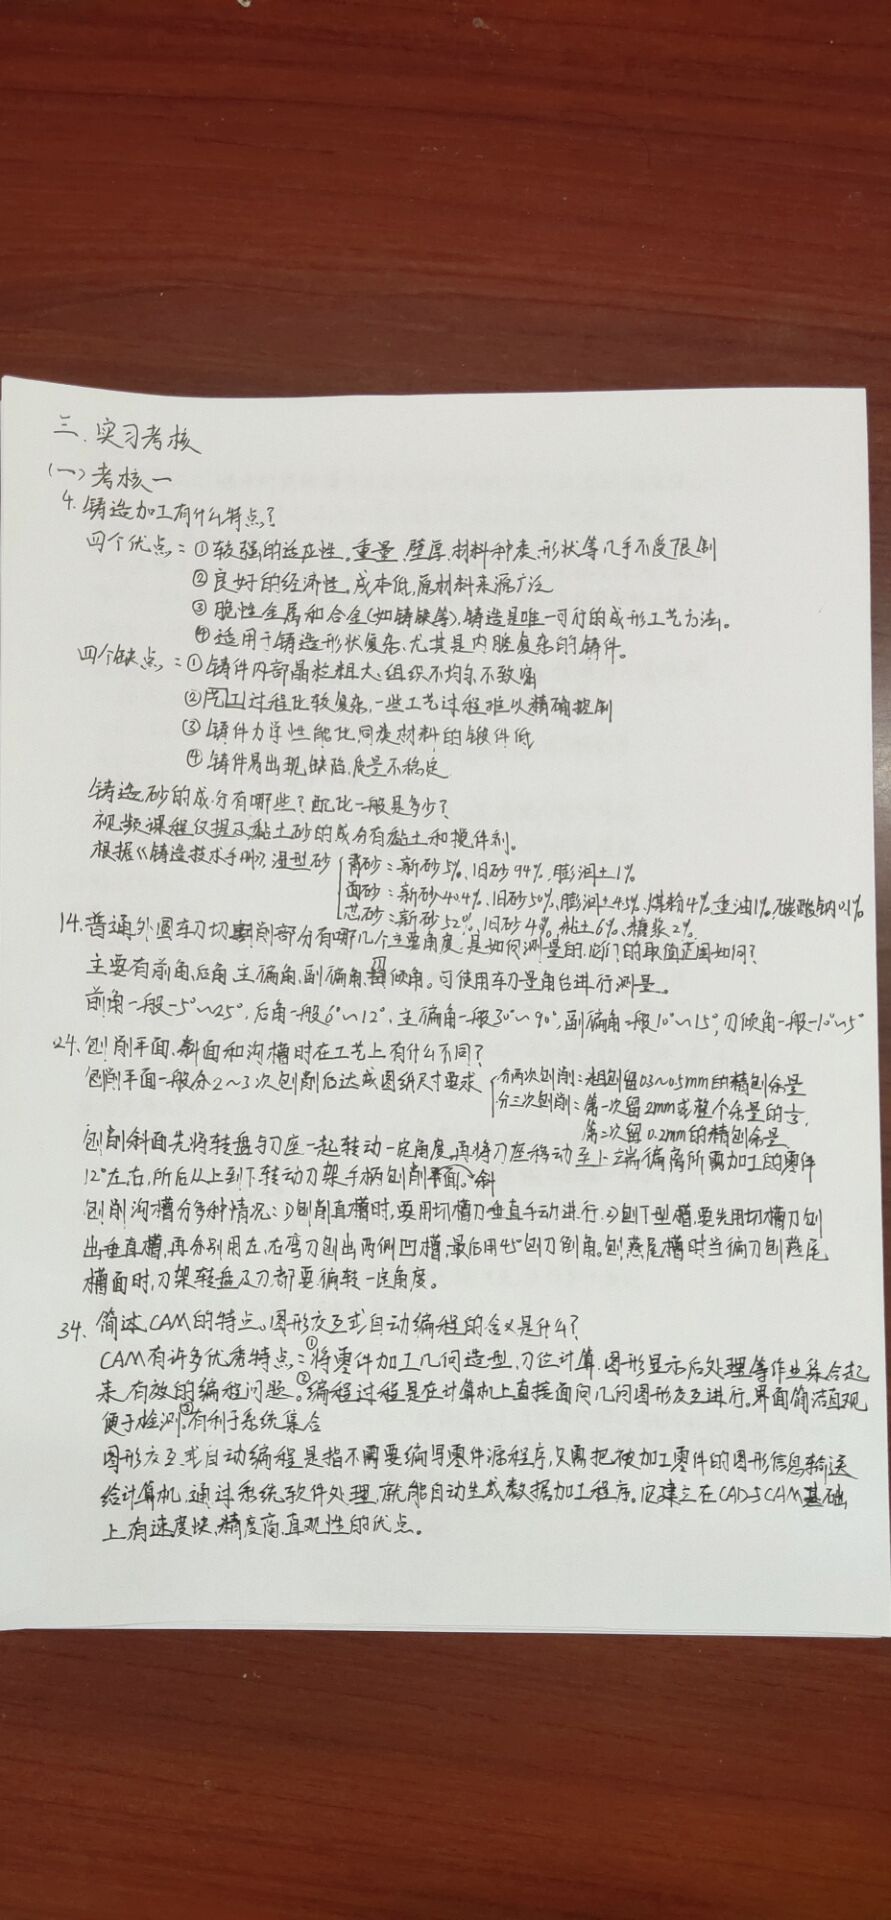 三.实习考核
(一)考核一
4.铸造加工有什么特点?
四个优点:①较强的适应性。重量、壁厚、材料种类、形状等几乎不受限制
②良好的经济性。成本低,原材料来源广泛
③脆性金属和合金(如铸铁等),铸造是唯一可行的成形工艺方法。
④适用于铸造形状复杂、尤其是内腔复杂的铸件。
四个缺点:①铸件内部晶粒粗大、组织不均匀不致密
②工过程比较复杂,一些工艺过程难以精确控制
③铸件力学性能比同类材料的锻件低
④铸件易出现缺陷,质量不稳定
铸造砂的成分有哪些?配比一般是多少?
视频课程仅提及黏土砂的成分有黏土和搅伴剂。
根据《铸造技术手册》,湿型砂 背砂:新砂5%、旧砂94%,膨润土1%
面砂:新砂40.4%、旧砂50%,膨润土4.5%,煤粉4%,重油1%,碳酸钠0.1%
芯砂:新砂52%,旧砂4%,黏土6%,糖浆2%
14.普通外圆车刀切削部分有哪几个主要角度,是如何测量的,它们的取值范围如何?
主要有前角,后角,主偏角,副偏角,刃倾角。可使用车刀量角台进行测量。
前角一般-5°~25°,后角一般6°~12°,主偏角一般30°~90°,副偏角一般10°~15°,刃倾角一般-10°~5°
24.刨削平面、斜面和沟槽时在工艺上有什么不同?
刨削平面一般分2~3次刨削后达成图纸尺寸要求 分两次刨削:粗刨留0.3~0.5mm的精刨余量
分三次刨削:第一次留2mm或整个余量的1/3,
第二次留0.2mm的精刨余量
刨削斜面先将转盘与刀座一起转动一定角度,再将刀座移动至上端偏离所需加工的零件
12°左右,所后从上到下转动刀架手柄刨削斜面。
刨削沟槽分多种情况:1)刨削直槽时,要用切槽刀垂直手动进行.2)刨T型槽,要先用切槽刀刨
出垂直槽,再分别用左、右弯刀刨出两侧凹槽,最后用45°刨刀倒角。刨燕尾槽时当偏刀刨燕尾
槽面时,刀架转盘及刀都要偏转一定角度。
34.简述CAM的特点。图形交互式自动编程的含义是什么?
CAM有许多优秀特点:①将零件加工几何造型,刀位计算,图形显示后处理等作业集合起
来,有效的编程问题。②编程过程是在计算机上直接面向几何图形交互进行。界面简洁直观
便于检测③有利于系统集合
图形交互式自动编程是指不需要编写零件源程序,只需把被加工零件的图形信息输送
给计算机,通过系统软件处理,就能自动生成数据加工程序。它建立在CAD与CAM基础
上,有速度快,精度高,直观性的优点。